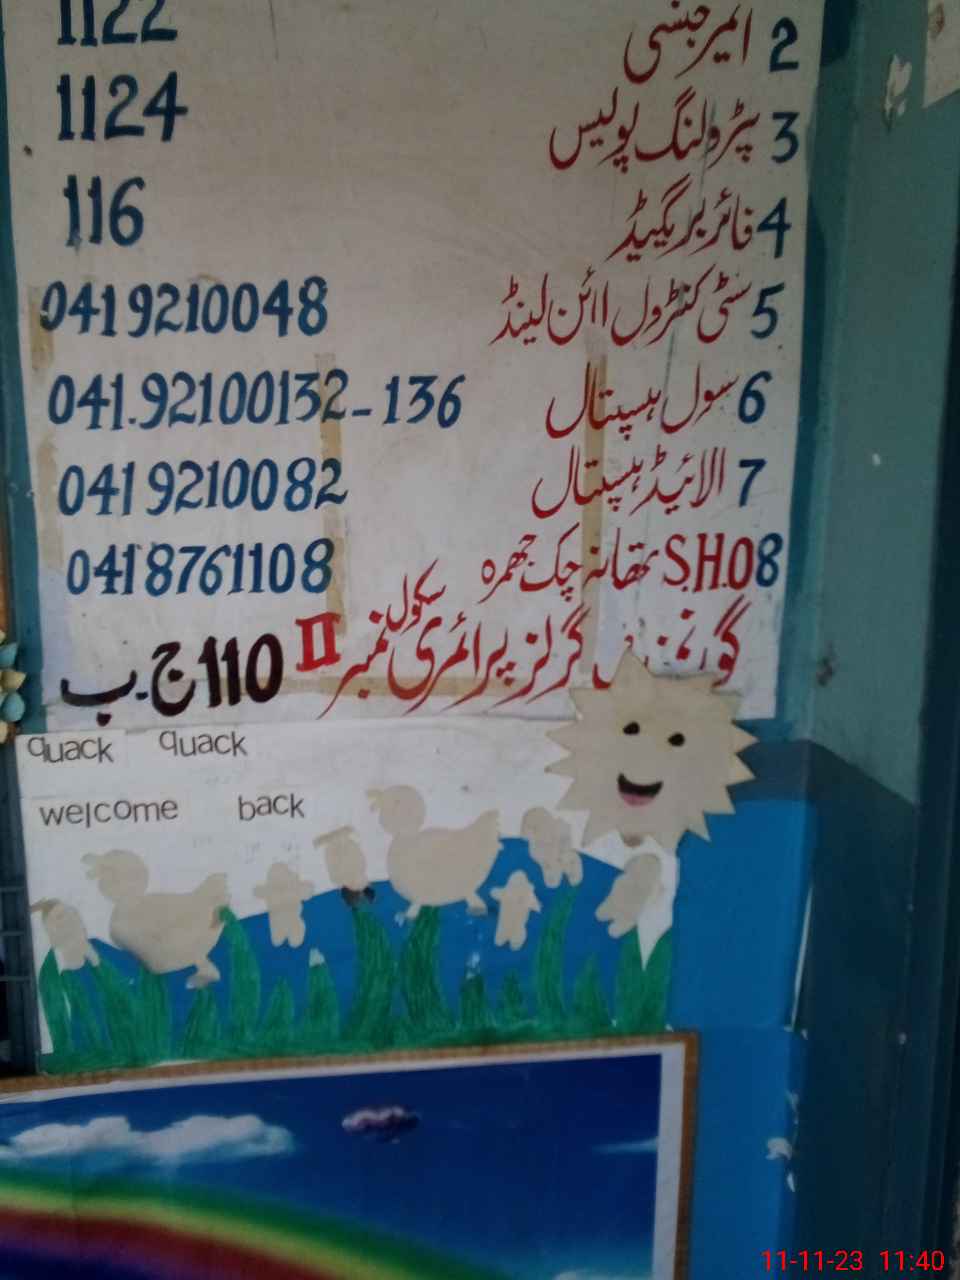 2 ایمرجنسی 1122
3 پٹرولنگ پولیس 1124
4 فائر بریگیڈ 116
5 سٹی کنٹرول اائن لینڈ 0419210048
6 سول ہسپتال 041.92100132-136
7 الائیڈ ہسپتال 0419210082
8 S.H.O تھانہ چک جھمرہ 0418761108
گورنمنٹ گرلز پرائمری سکول نمبر II 110 ج-ب
quack quack
welcome back
11-11-23 11:40